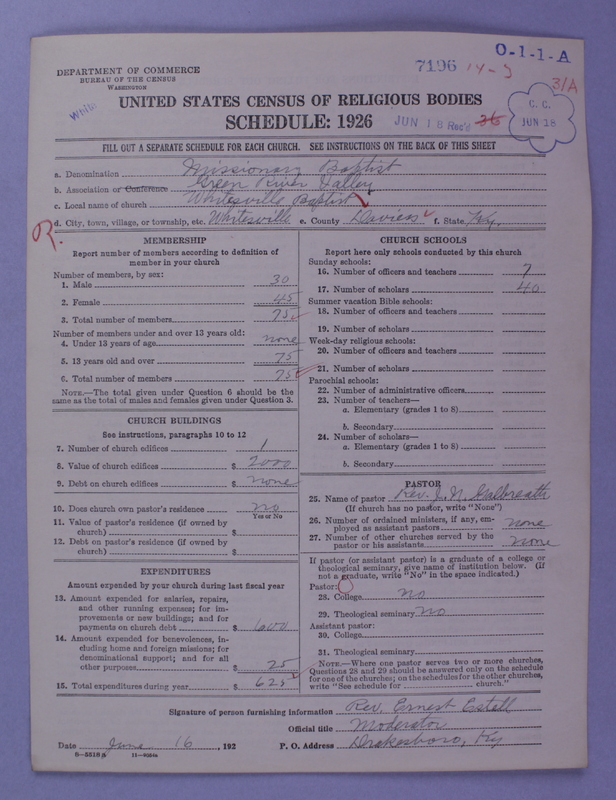 O-1-1-A
7196 14-5
31A
DEPARTMENT OF COMMERCE
BUREAU OF THE CENSUS
WASHINGTON
UNITED STATES CENSUS OF RELIGIOUS BODIES
SCHEDULE: 1926
JUN 18 Rec'd 36
C. C.
JUN 18
FILL OUT A SEPARATE SCHEDULE FOR EACH CHURCH. SEE INSTRUCTIONS ON THE BACK OF THIS SHEET
a. Denomination Missionary Baptist
b. Association or Conference Green River Valley
c. Local name of church Whitesville Baptist
d. City, town, village, or township, etc. Whitesville e. County Daviess f. State Ky.
R.
MEMBERSHIP
Report number of members according to definition of
member in your church
Number of members, by sex:
1. Male 30
2. Female 45
3. Total number of members 75
Number of members under and over 13 years old:
4. Under 13 years of age none
5. 13 years old and over 75
6. Total number of members 75
NOTE.—The total given under Question 6 should be the
same as the total of males and females given under Question 3.
CHURCH BUILDINGS
See instructions, paragraphs 10 to 12
7. Number of church edifices 1
8. Value of church edifices $ 2000
9. Debt on church edifices $ none
10. Does church own pastor's residence no
Yes or No
11. Value of pastor's residence (if owned by
church) $
12. Debt on pastor's residence (if owned by
church) $
EXPENDITURES
Amount expended by your church during last fiscal year
13. Amount expended for salaries, repairs,
and other running expenses; for im-
provements or new buildings; and for
payments on church debt $ 600
14. Amount expended for benevolences, in-
cluding home and foreign missions; for
denominational support; and for all
other purposes $ 25
15. Total expenditures during year $ 625
CHURCH SCHOOLS
Report here only schools conducted by this church
Sunday schools:
16. Number of officers and teachers 7
17. Number of scholars 40
Summer vacation Bible schools:
18. Number of officers and teachers
19. Number of scholars
Week-day religious schools:
20. Number of officers and teachers
21. Number of scholars
Parochial schools:
22. Number of administrative officers
23. Number of teachers—
a. Elementary (grades 1 to 8)
b. Secondary
24. Number of scholars—
a. Elementary (grades 1 to 8)
b. Secondary
PASTOR
25. Name of pastor Rev. J. N. Galbreath
(If church has no pastor, write "None")
26. Number of ordained ministers, if any, em-
ployed as assistant pastors none
27. Number of other churches served by the
pastor or his assistants none
If pastor (or assistant pastor) is a graduate of a college or
theological seminary, give name of institution below. (If
not a graduate, write "No" in the space indicated.)
Pastor:
28. College no
29. Theological seminary no
Assistant pastor:
30. College
31. Theological seminary
NOTE.—Where one pastor serves two or more churches,
Questions 28 and 29 should be answered only on the schedule
for one of the churches; on the schedules for the other churches,
write "See schedule for church."
Signature of person furnishing information Rev. Ernest Estell
Official title Moderator
Date June 16, 192 P. O. Address Drakesboro, Ky
8-5518A